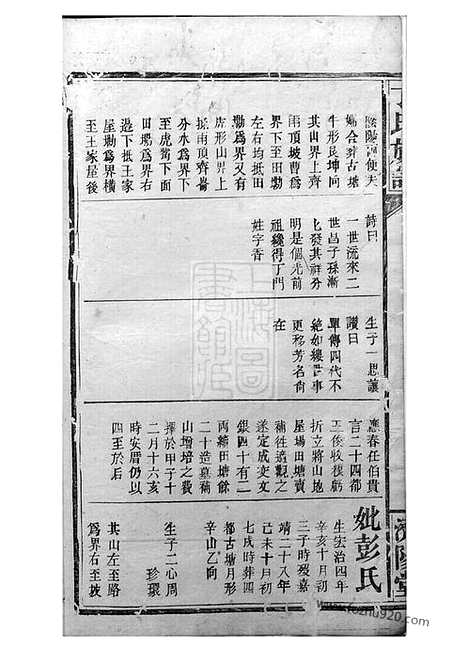 丁氏族譜
便夫
婦合葬古塘
牛形艮坤向
其山界上齊
雨頂坡曹爲
界下至田勘
左右均抵田
勘爲界又有
虎形山界上
抵雨頂齊崙
分水爲界下
至虎下面
田爲界右
邊下抵王家
屋勘爲界橫
至王家屋後
詩曰
一世流來二
世昌子孫漸
匕發其祥分
明是個光前
祖纔得丁門
姓字香
生子一思讓
讚曰
單傳四代不
絕如縷世事
更移芳名尚
在
應春任伯貴
言二十四都
後收虧
折立將山地
屋場田塘賣
補往遠觀之
遂定成文
銀四十有二
両續田塘餘
二十造墓補
山增培之費
擇於甲子十
二月十六亥
時安厝仍以
四至於后
妣彭氏
生宏治四年
辛亥十月初
三子時歿嘉
靖三十八年
己未十月初
七戌時葬四
都古塘月形
辛山乙向
生子二心周
珍環
其山左至路
爲界右至坡
濟陽堂
上海圖書館藏
www.fozhu920.com